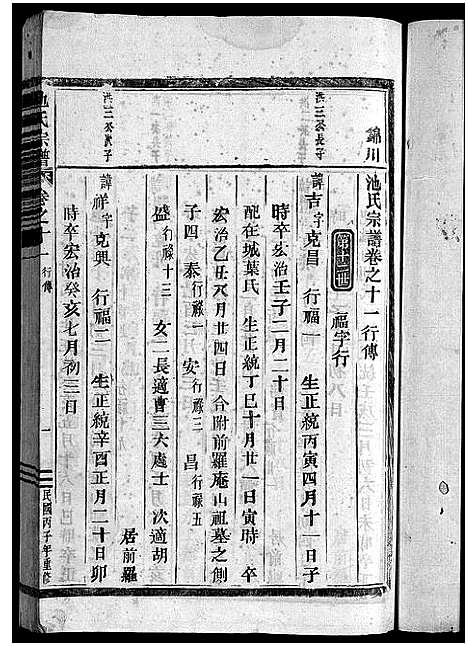 錦川 池氏宗譜卷之十一行傳
第十一冊
福字行
洪三公長子
諱吉字克昌 行福一 生正統丙寅四月十一日子
時卒宏治壬子二月二十日
配在城葉氏 生正統丁巳十月廿一日寅時 卒
宏治乙丑八月廿四日 合附前羅庵山祖墓之側
子四 泰行祿一 安行祿三 昌行祿五
盛行祿十三 女二長適曹三六處士 次適胡
居前羅
洪三公次子
諱祥字克興 行福二 生正統辛酉正月二十日卯
時卒宏治癸亥七月初三日
池氏宗譜 卷之十一 行傳
一
民國丙子年重修